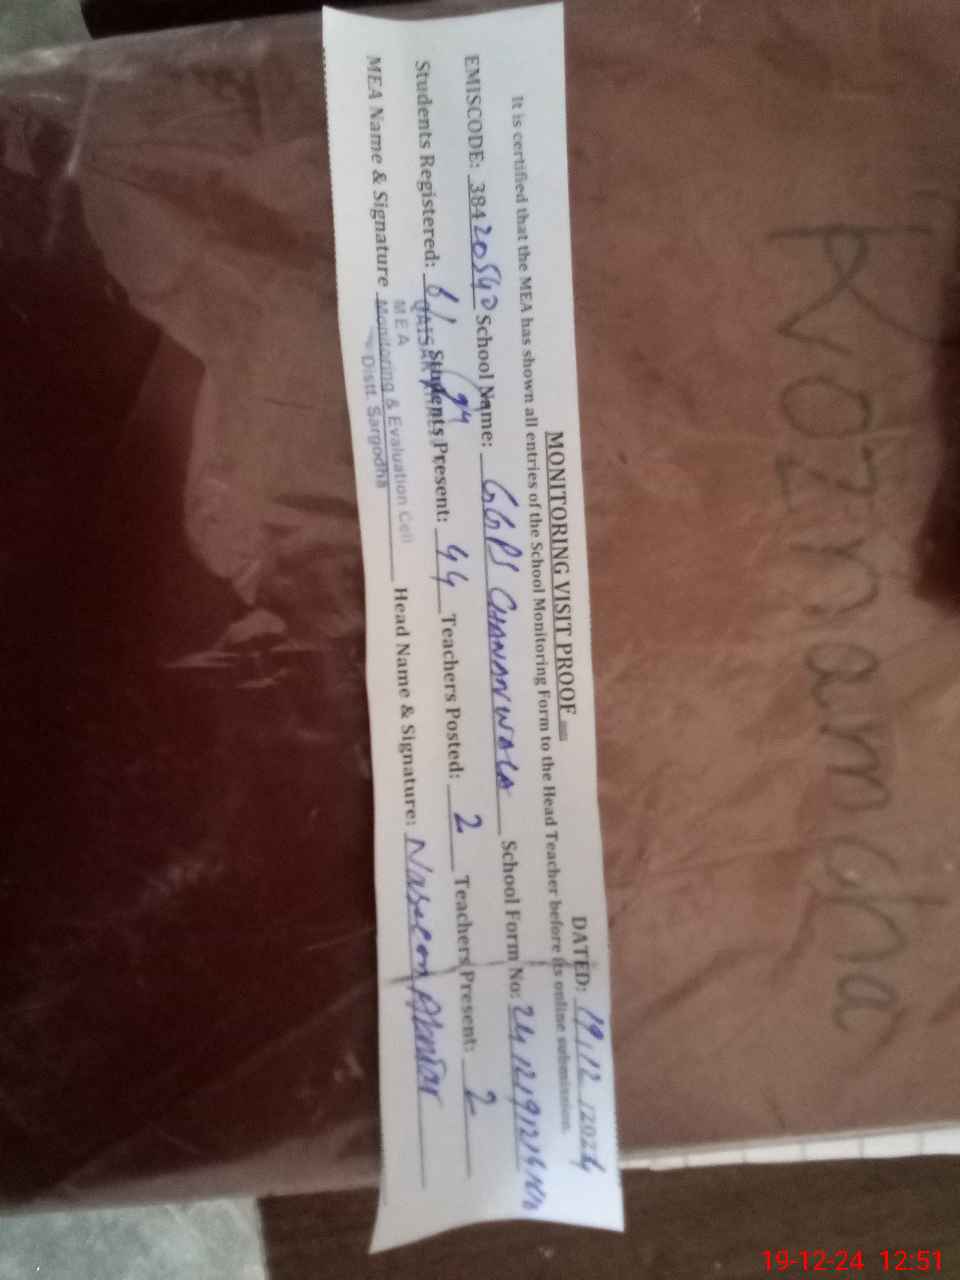 MONITORING VISIT PROOF
DATED: 19.12.2024
It is certified that the MEA has shown all entries of the School Monitoring Form to the Head Teacher before its online submission.
EMISCODE: 38420540 School Name: GGPS CHANANWALA School Form No:
Students Registered: 61 Students Present: 44 Teachers Posted: 2 Teachers Present: 2
MEA Name & Signature Head Name & Signature: Akhtar
MEA
Monitoring & Evaluation Cell
Distt. Sargodha
Roznamcha
19-12-24 12:51